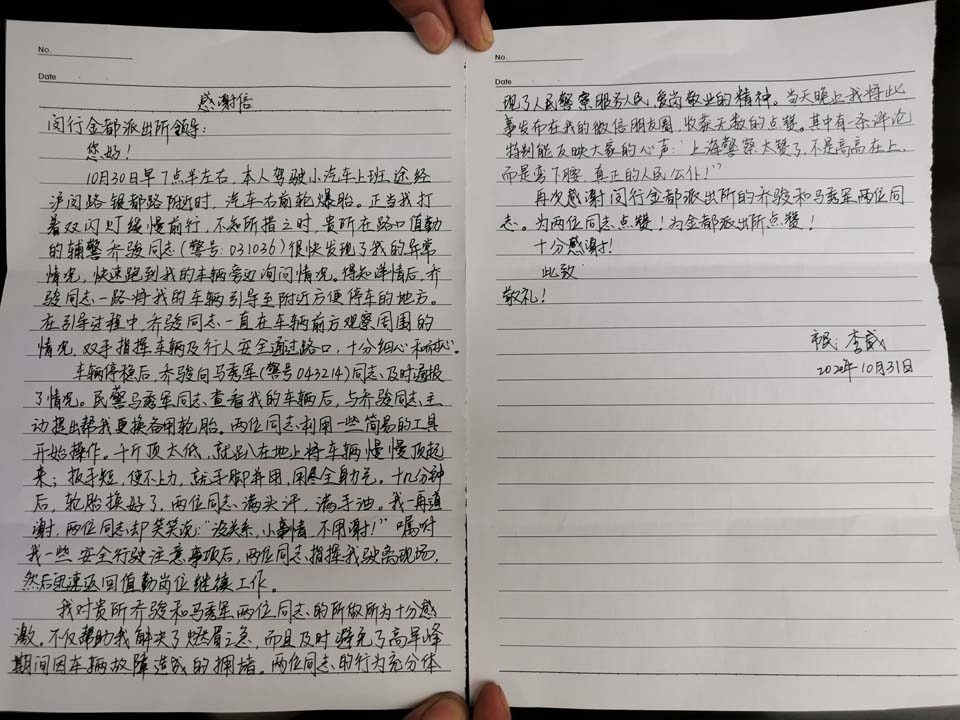 No.
Date
感谢信
闵行金都派出所领导：
您好！
10月30日早7点半左右，本人驾驶小汽车上班，途经
沪闵路银都路附近时，汽车右前轮爆胎。正当我打
着双闪灯缓慢前行，不知所措之时，贵所在路口值勤
的辅警乔骏同志（警号：031036）很快发现了我的异常
情况，快速跑到我的车辆旁边询问情况。得知详情后，乔
骏同志一路将我的车辆引导至附近方便停车的地方。
在引导过程中，乔骏同志一直在车辆前方观察周围的
情况，双手指挥车辆及行人安全通过路口，十分细心和耐心。
车辆停稳后，乔骏向马秀军（警号043214）同志及时通报
了情况。民警马秀军同志查看我的车辆后，与乔骏同志主
动提出帮我更换备用轮胎。两位同志利用一些简易的工具
开始操作。千斤顶太低，就趴在地上将车辆慢慢顶起
来；扳手短，使不上力，就手脚并用，用尽全身力气。十几分钟
后，轮胎换好了，两位同志满头汗，满手油。我一再道
谢，两位同志却笑笑说：“没关系，小事情，不用谢！”嘱咐
我一些安全行驶注意事项后，两位同志指挥我驶离现场，
然后迅速返回值勤岗位继续工作。
我对贵所乔骏和马秀军两位同志的所做所为十分感
激。不仅帮助我解决了燃眉之急，而且及时避免了高早峰
期间因车辆故障造成的拥堵。两位同志的行为充分体
No.
Date
现了人民警察服务人民，爱岗敬业的精神。当天晚上我将此
事发布在我的微信朋友圈，收获无数的点赞。其中有一条评论
特别能反映大家的心声：“上海警察太赞了，不是高高在上，
而是弯下腰，真正的人民公仆！”
再次感谢闵行金都派出所的乔骏和马秀军两位同
志。为两位同志点赞！为金都派出所点赞！
十分感谢！
此致
敬礼！
市民：李威
2020年10月31日